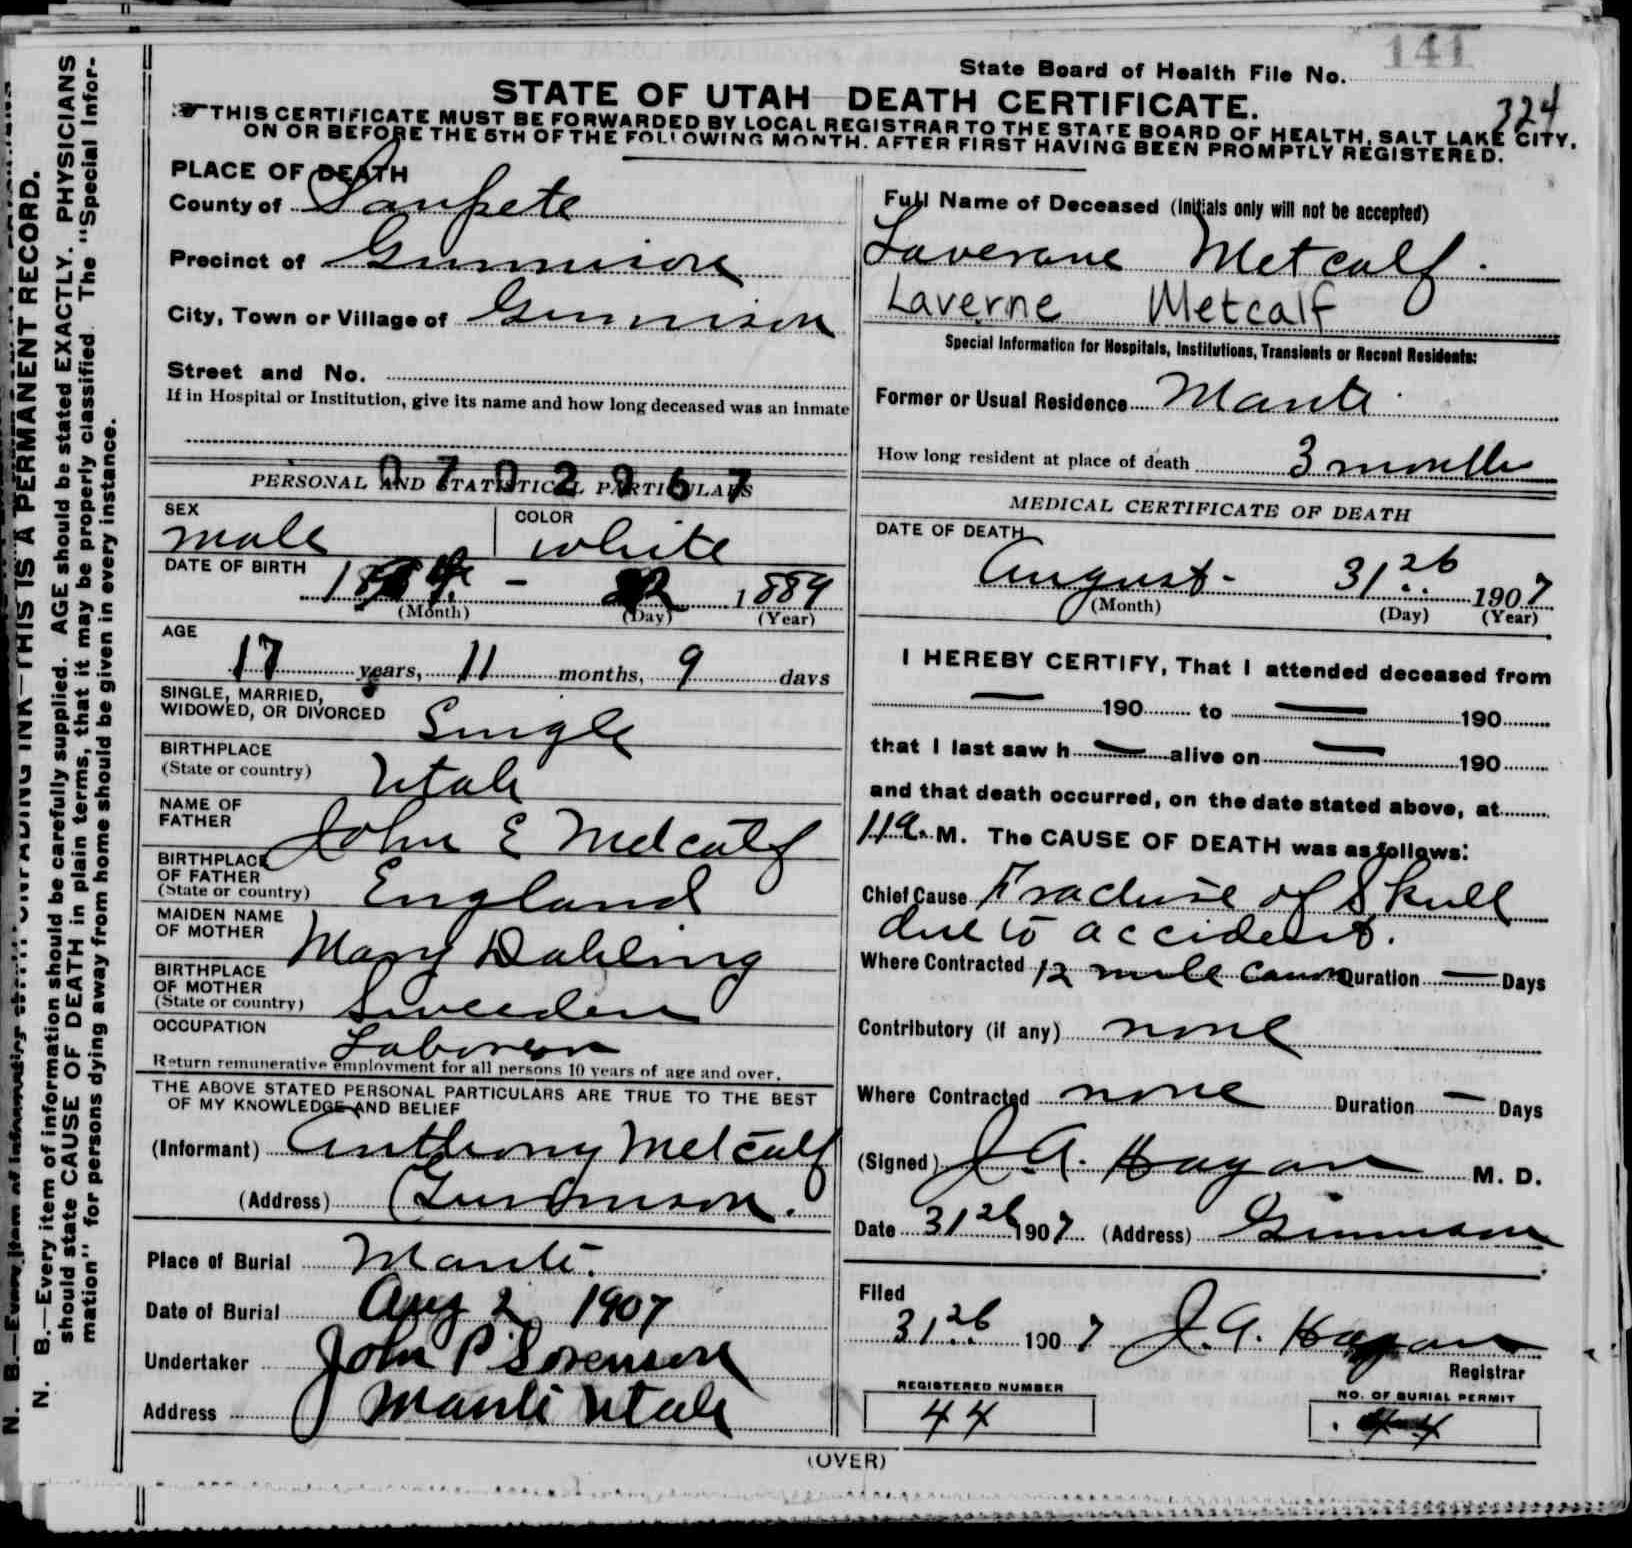 141
State Board of Health File No.
STATE OF UTAH DEATH CERTIFICATE.
324
THIS CERTIFICATE MUST BE FORWARDED BY LOCAL REGISTRAR TO THE STATE BOARD OF HEALTH, SALT LAKE CITY,
ON OR BEFORE THE 5TH OF THE FOLLOWING MONTH. AFTER FIRST HAVING BEEN PROMPTLY REGISTERED.
N. B.—Every item of information should be carefully supplied. AGE should be stated EXACTLY. PHYSICIANS
should state CAUSE OF DEATH in plain terms, that it may be properly classified. The "Special Infor-
mation" for persons dying away from home should be given in every instance.
UNFADING INK—THIS IS A PERMANENT RECORD.
PLACE OF DEATH
County of Sanpete
Precinct of Gunnison
City, Town or Village of Gunnison
Street and No.
If in Hospital or Institution, give its name and how long deceased was an inmate
PERSONAL AND STATISTICAL PARTICULARS
SEX male COLOR white
DATE OF BIRTH 1889
(Month) (Day) (Year)
AGE
17 years, 11 months, 9 days
SINGLE, MARRIED,
WIDOWED, OR DIVORCED Single
BIRTHPLACE
(State or country) Utah
NAME OF
FATHER John E Metcalf
BIRTHPLACE
OF FATHER
(State or country) England
MAIDEN NAME
OF MOTHER Mary Dahling
BIRTHPLACE
OF MOTHER
(State or country) Sweeden
OCCUPATION Laborer
Return remunerative employment for all persons 10 years of age and over.
THE ABOVE STATED PERSONAL PARTICULARS ARE TRUE TO THE BEST
OF MY KNOWLEDGE AND BELIEF
(Informant) Anthony Metcalf
(Address) Gunnison.
Place of Burial Manti.
Date of Burial Aug 2 1907
Undertaker John P. Sorenson
Address Manti Utah
Full Name of Deceased (Initials only will not be accepted)
Metcalf.
Laverne Metcalf
Special Information for Hospitals, Institutions, Transients or Recent Residents:
Former or Usual Residence Manti
How long resident at place of death 3 months
MEDICAL CERTIFICATE OF DEATH
DATE OF DEATH
August - 31 1907
(Month) (Day) (Year)
I HEREBY CERTIFY, That I attended deceased from
— 190 to — 190
that I last saw h — alive on — 190
and that death occurred, on the date stated above, at
11 a. M. The CAUSE OF DEATH was as follows:
Chief Cause Fracture of Skull
due to accident.
Where Contracted 12 mile Canon Duration — Days
Contributory (if any) none
Where Contracted none Duration — Days
(Signed) J. A. Hagan M. D.
Date 31 1907 (Address) Gunnison
Filed
31 1907 J. A. Hagan
Registrar
REGISTERED NUMBER
44
NO. OF BURIAL PERMIT
44
(OVER)